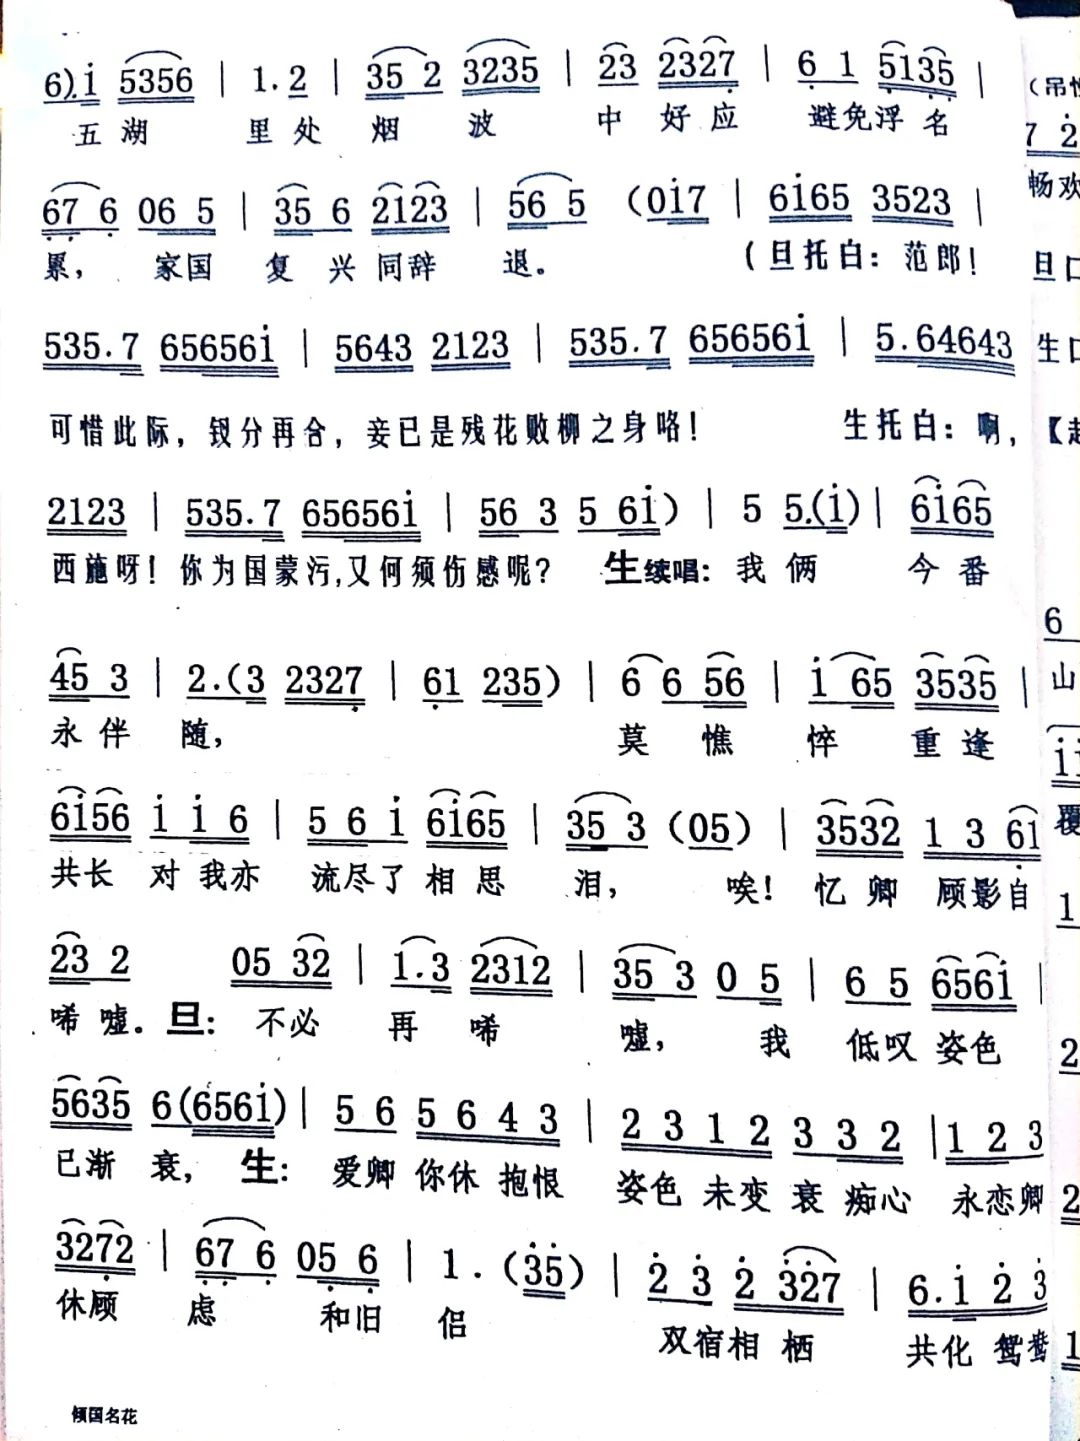 6)i 5356 | 1.2 | 35 2 3235 | 23 2327 | 6 1 5135 |
五湖 里处 烟 波 中 好应 避免浮名
67 6 06 5 | 35 6 2123 | 56 5 (0i7 | 6i65 3523 |
累， 家国 复兴同辞 退。 (旦托白：范郎！
535.7 65656i | 5643 2123 | 535.7 65656i | 5.64643
可惜此际，钗分再合，妾已是残花败柳之身咯！ 生托白：啊，
2123 | 535.7 65656i | 56 3 5 6i) | 5 5.(i) | 6i65
西施呀！你为国蒙污，又何须伤感呢？ 生续唱：我俩 今番
45 3 | 2.(3 2327 | 61 235) | 6 6 56 | i 65 3535 |
永伴 随， 莫 憔 悴 重逢
6i56 i i 6 | 5 6 i 6i65 | 35 3 (05) | 3532 1 3 61
共长 对我亦 流尽了相思 泪， 唉！忆卿 顾影自
23 2 05 32 | 1.3 2312 | 35 3 0 5 | 6 5 656i |
唏嘘。旦：不必 再 唏 嘘， 我 低叹姿色
5635 6(656i) | 5 6 5 6 4 3 | 2 3 1 2 3 3 2 | 1 2 3
已渐 衰， 生：爱卿你休抱恨 姿色未变衰痴心 永恋卿
3272 | 67 6 05 6 | 1.(35) | 2 3 2 327 | 6.i 2 3
休顾 虑 和旧 侣 双宿相栖 共化鸳鸯
倾国名花
(吊
7 2
畅欢
旦口
生口
【
6
山
ii
覆
1
2
2
1